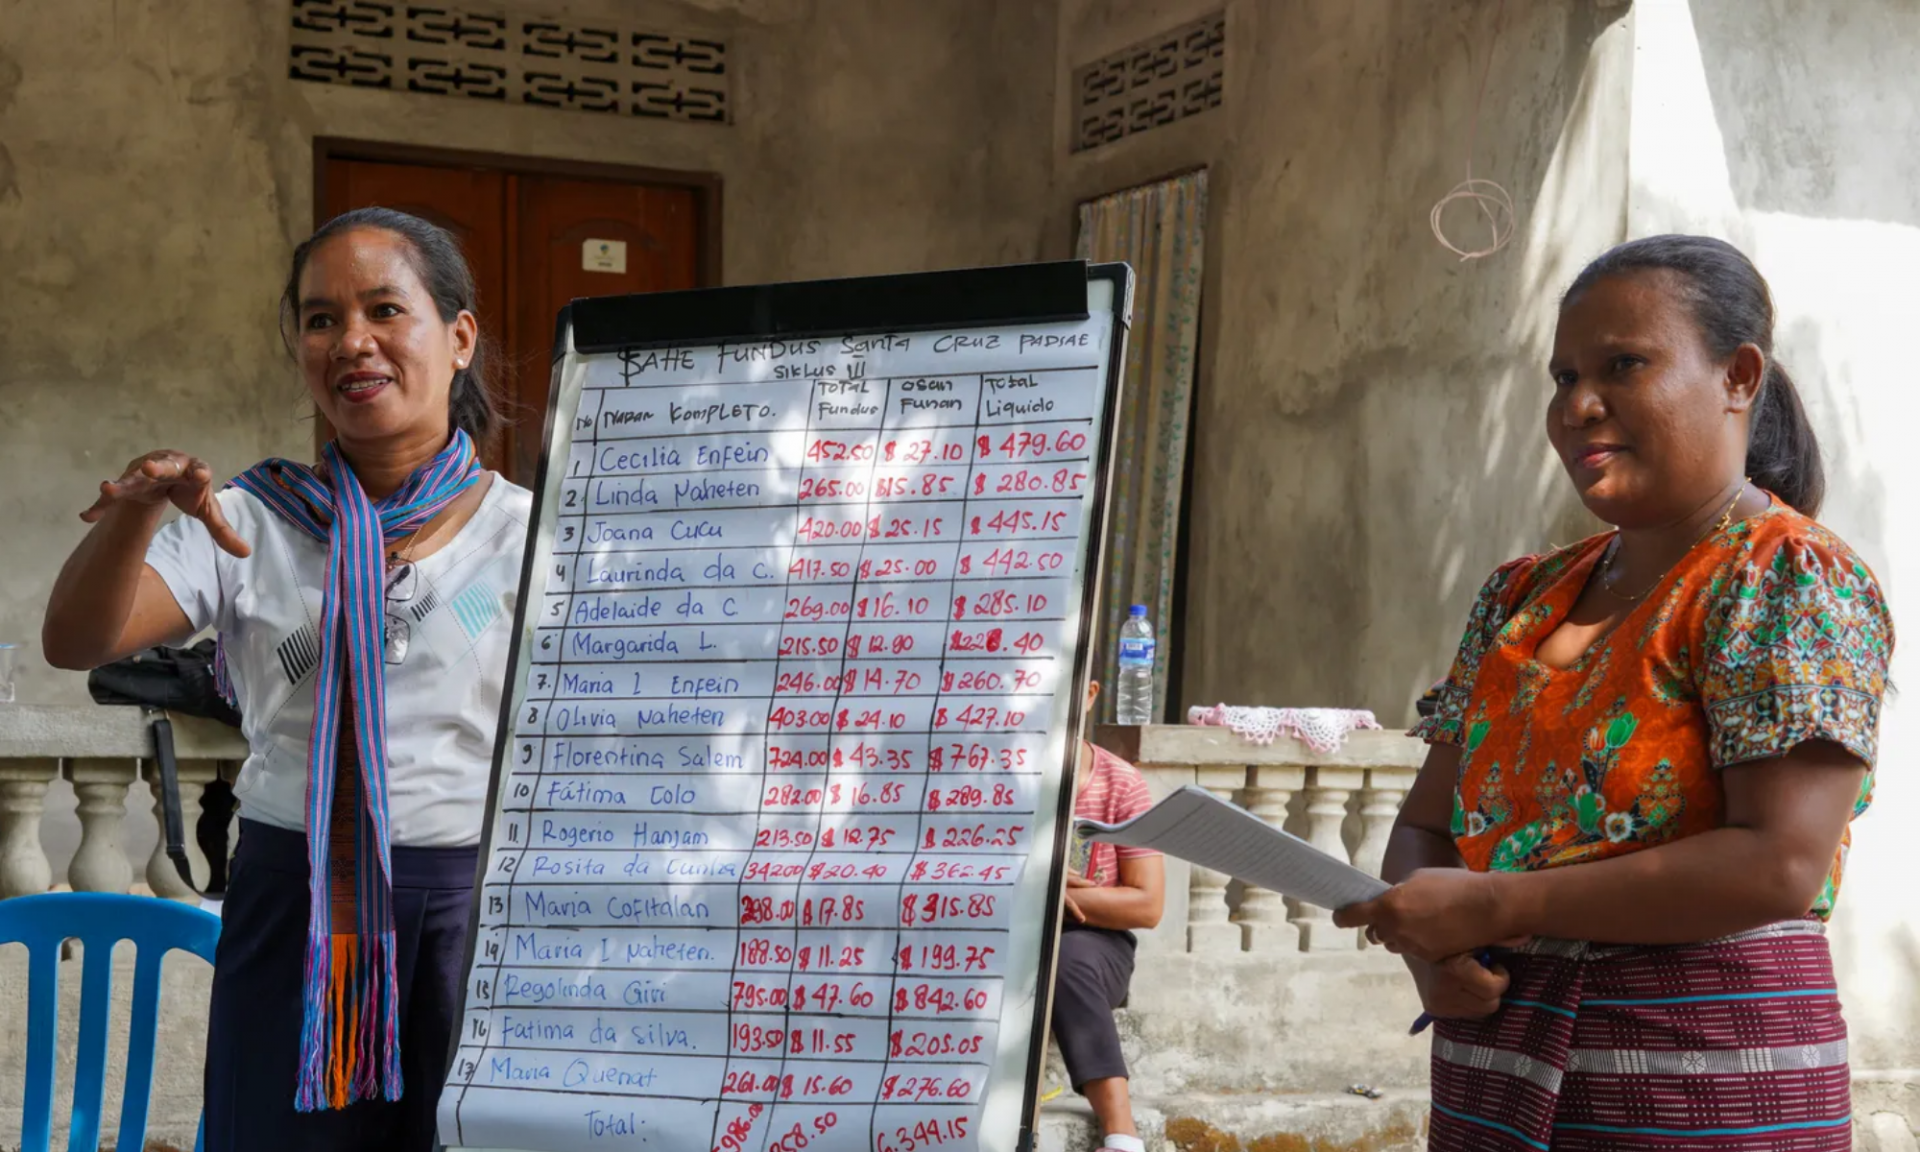 FAHE FUNDUS Santa CRUZ PADIAE
SIKLUS III
No NARAN KOMPLETO. TOTAL Fundus OSAN Funan Total Liquido
1 Cecilia Enfein 452.50 $ 27.10 $ 479.60
2 Linda Naheten 265.00 $15.85 $ 280.85
3 Joana Cucu 420.00 $ 25.15 $ 445.15
4 Laurinda da C. 417.50 $ 25.00 $ 442.50
5 Adelaide da C. 269.00 $ 16.10 $ 285.10
6 Margarida L. 215.50 $ 12.90 $228.40
7. Maria I Enfein 246.00 $ 14.70 $ 260.70
8 Olivia Naheten 403.00 $ 24.10 $ 427.10
9 Florentina Salem 724.00 $ 43.35 $ 767.35
10 Fátima Colo 282.00 $ 16.85 $ 289.85
11. Rogerio Hanjam 213.50 $ 12.75 $ 226.25
12 Rosita da Cunha 342.00 $ 20.40 $ 362.45
13 Maria Cofitalan 298.00 $ 17.85 $ 315.85
14 Maria I Naheten. 188.50 $ 11.25 $ 199.75
15 Regolinda Givi 795.00 $ 47.60 $ 842.60
16 Fatima da Silva. 193.50 $ 11.55 $ 205.05
17 Maria Quenat 261.00 $ 15.60 $ 276.60
Total: 6,344.15